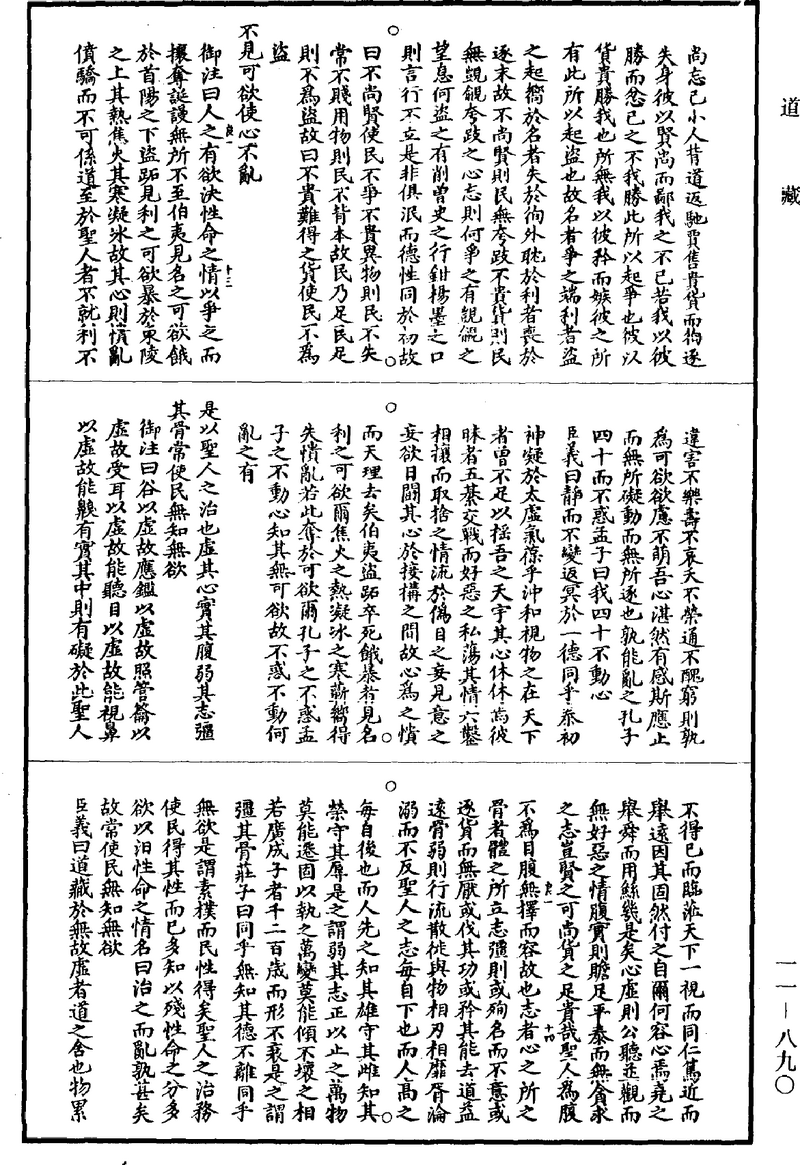 道藏
尚忘己小人背道返馳賈售貴貨而徇逐
失身彼以賢尚而鄙我之不已若我以彼
勝而忿己之不我勝此所以起爭也彼以
貨貴勝我也所無我以彼矜而嫉彼之所
有此所以起盜也故名者爭之端利者盜
之起嚮於名者失於徇外耽於利者喪於
逐末故不尚賢則民無夸跂不貴貨則民
無覬覦夸跂之心忘則何爭之有覬覦之
望息何盜之有削曾史之行鉗楊墨之口
則言行不立是非俱泯而德性同於初故
曰不尚賢使民不爭不貴異物則民不失
常不賤用物則民不背本故民乃足民足
則不為盜故曰不貴難得之貨使民不為
盜
不見可欲使心不亂
御注曰人之有欲決性命之情以爭之而
攘奪誕謾無所不至伯夷見名之可欲餓
於首陽之下盜跖見利之可欲暴於東陵
之上其熱焦火其寒凝冰故其心則憒亂
僨驕而不可係道至於聖人者不就利不
違害不樂壽不哀夭不榮通不醜窮則孰
為可欲欲慮不萌吾心湛然有感斯應止
而無所礙動而無所逐也孰能亂之孔子
四十而不惑孟子曰我四十不動心
臣義曰靜而不變返冥於一德同乎泰初
神凝於太虛氣徐乎沖和視物之在天下
者曾不足以搖吾之天宇其心休休焉彼
昧者五綦交戰而好惡之私蕩其情六鑿
相攘而取捨之情流於偽目之妄見意之
妄欲日鬬其心於接搆之間故心為之憒
而天理去矣伯夷盜跖卒死餓暴者見名
利之可欲爾焦火之熱凝冰之寒蘄嚮得
失憒亂若此奪於可欲爾孔子之不惑孟
子之不動心知其無可欲故不惑不動何
亂之有
是以聖人之治也虛其心實其腹弱其志彊
其骨常使民無知無欲
御注曰谷以虛故應鑑以虛故照管籥以
虛故受耳以虛故能聽目以虛故能視鼻
以虛故能齅有實其中則有礙於此聖人
不得已而臨蒞天下一視而同仁篤近而
舉遠因其固然付之自爾何容心焉堯之
舉舜而用鯀幾是矣心虛則公聽並觀而
無好惡之情腹實則贍足平泰而無貪求
之志豈賢之可尚貨之足貴哉聖人為腹
不為目腹無擇而容故也志者心之所之
骨者體之所立志彊則或殉名而不息或
逐貨而無厭或伐其功或矜其能去道益
遠骨弱則行流散徙與物相刃相靡胥淪
溺而不反聖人之志每自下也而人高之
每自後也而人先之知其雄守其雌知其
榮守其辱是之謂弱其志正以止之萬物
莫能遷固以執之萬變莫能傾不壞之相
若廣成子者千二百歲而形不衰是之謂
彊其骨莊子曰同乎無知其德不離同乎
無欲是謂素樸而民性得矣聖人之治務
使民得其性而已多知以殘性命之分多
欲以汩性命之情名曰治之而亂孰甚矣
故常使民無知無欲
臣義曰道藏於無故虛者道之舍也物累
十三
十四
一一-八九〇